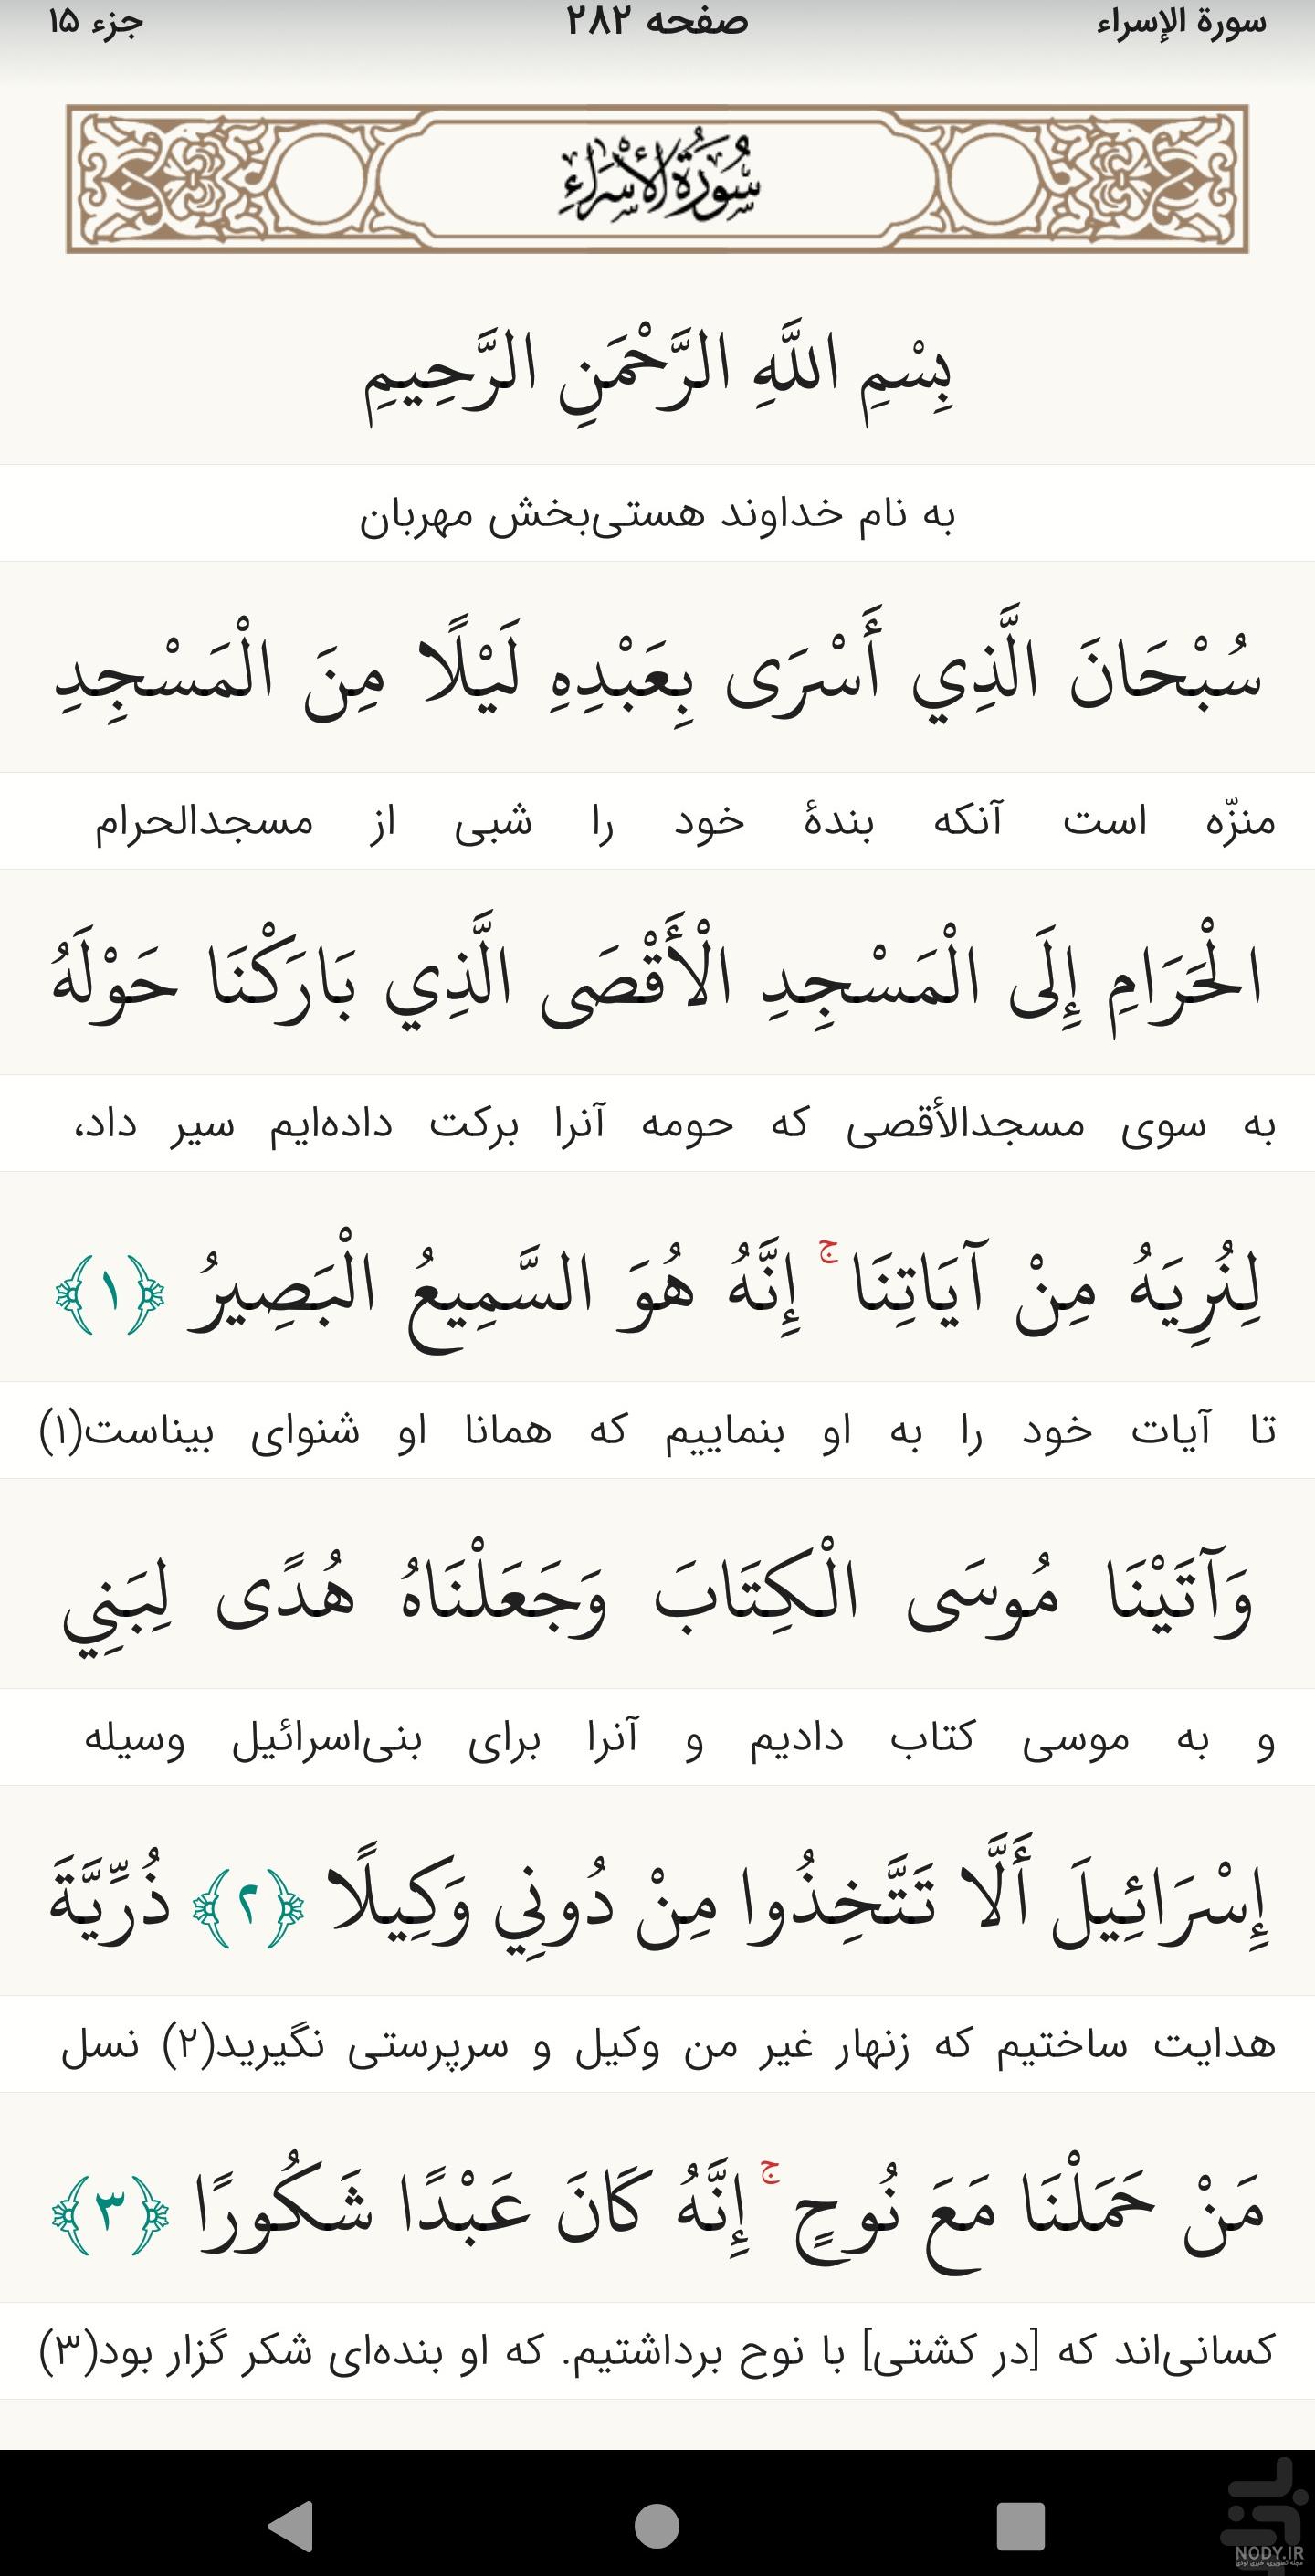 سورة الإسراء صفحه ۲۸۲ جزء ۱۵
سُورَةُ الْإِسْرَاءِ
بِسْمِ اللَّهِ الرَّحْمَنِ الرَّحِيمِ
به نام خداوند هستی‌بخش مهربان
سُبْحَانَ الَّذِي أَسْرَى بِعَبْدِهِ لَيْلًا مِنَ الْمَسْجِدِ
منزّه است آنکه بندهٔ خود را شبی از مسجدالحرام
الْحَرَامِ إِلَى الْمَسْجِدِ الْأَقْصَى الَّذِي بَارَكْنَا حَوْلَهُ
به سوی مسجدالأقصی که حومه آنرا برکت داده‌ایم سیر داد،
لِنُرِيَهُ مِنْ آيَاتِنَا ۚ إِنَّهُ هُوَ السَّمِيعُ الْبَصِيرُ ﴿۱﴾
تا آیات خود را به او بنماییم که همانا او شنوای بیناست(۱)
وَآتَيْنَا مُوسَى الْكِتَابَ وَجَعَلْنَاهُ هُدًى لِبَنِي
و به موسی کتاب دادیم و آنرا برای بنی‌اسرائیل وسیله
إِسْرَائِيلَ أَلَّا تَتَّخِذُوا مِنْ دُونِي وَكِيلًا ﴿۲﴾ ذُرِّيَّةَ
هدایت ساختیم که زنهار غیر من وکیل و سرپرستی نگیرید(۲) نسل
مَنْ حَمَلْنَا مَعَ نُوحٍ ۚ إِنَّهُ كَانَ عَبْدًا شَكُورًا ﴿۳﴾
کسانی‌اند که [در کشتی] با نوح برداشتیم. که او بنده‌ای شکر گزار بود(۳)
NODY.IR